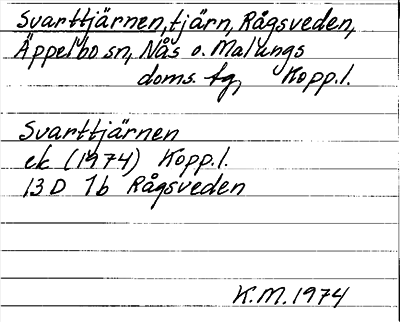 Svarttjärnen, tjärn, Rågsveden,
Äppelbo sn, Nås o. Malungs
doms. tg, Kopp.l.
Svarttjärnen
ek (1974) Kopp.l.
13 D 7b Rågsveden
K.M. 1974